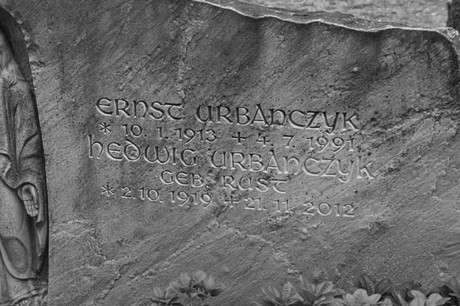 ERNST URBANCZYK
* 10. 1. 1913 + 4. 7. 1991
HEDWIG URBANCZYK
GEB. RUST
* 2. 10. 1919 + 21. 11. 2012